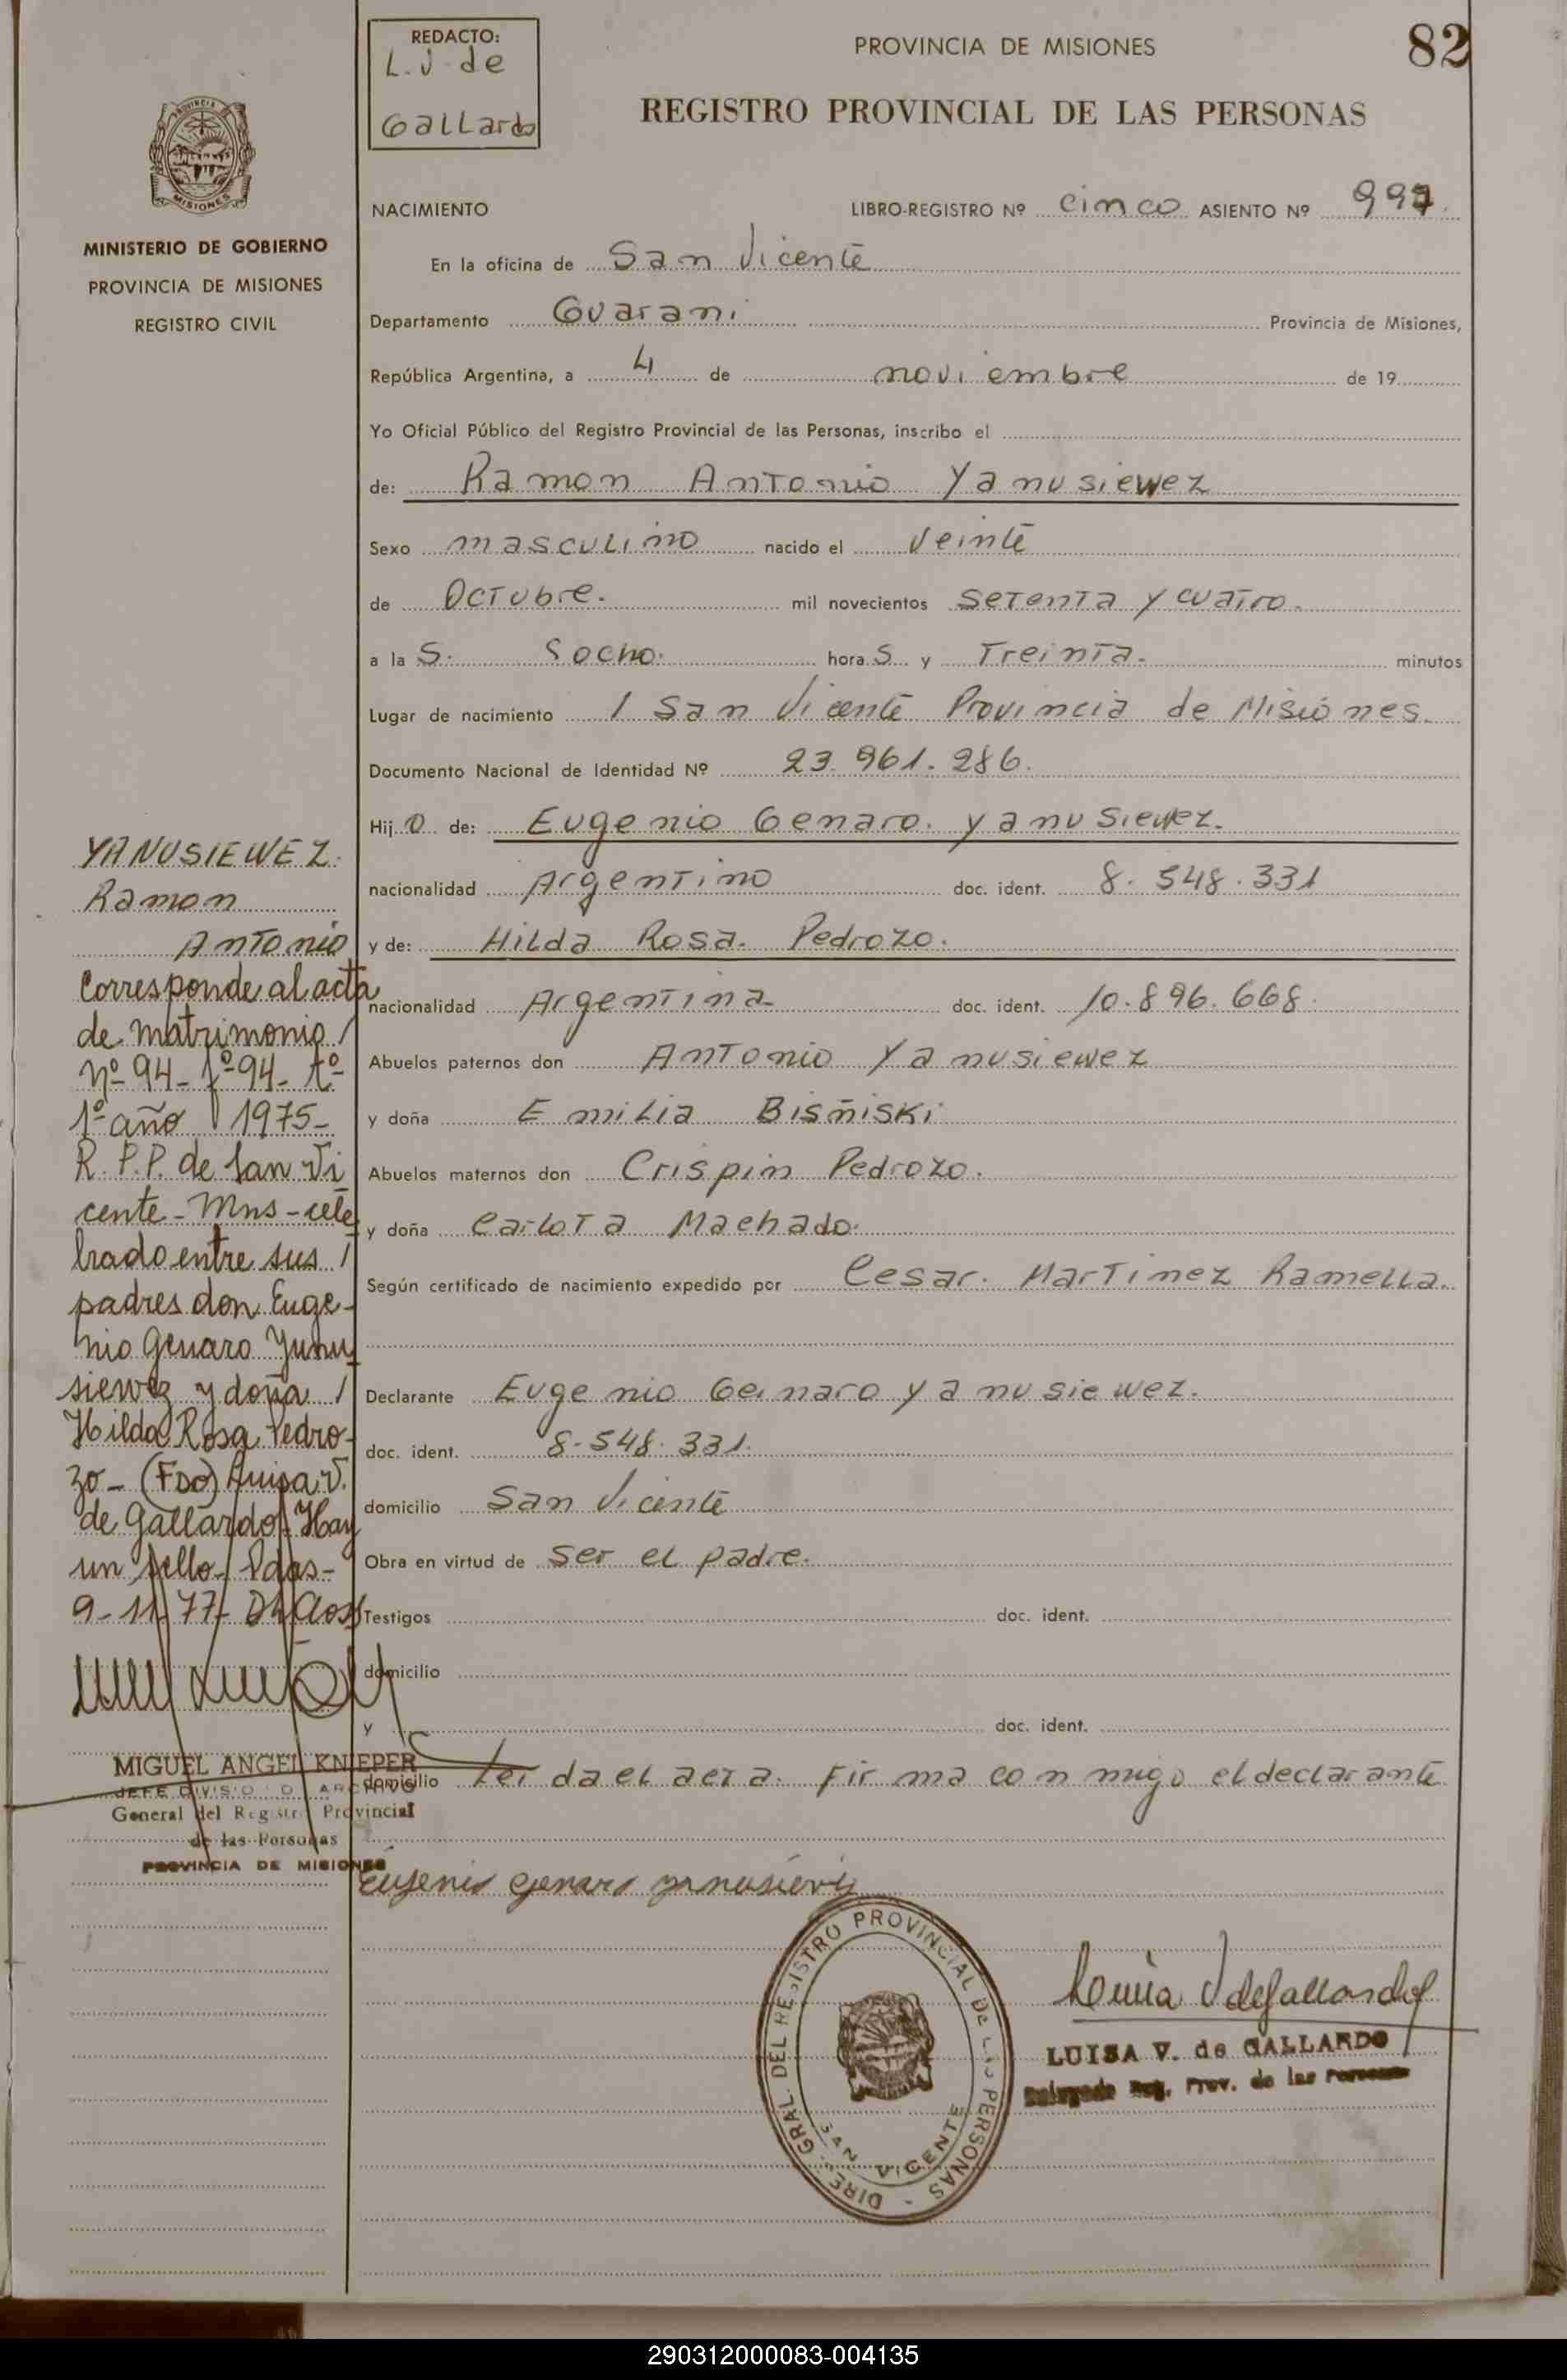 REDACTO:
L. V. de
Gallardo
PROVINCIA DE MISIONES
82
REGISTRO PROVINCIAL DE LAS PERSONAS
PROVINCIA
MISIONES
MINISTERIO DE GOBIERNO
PROVINCIA DE MISIONES
REGISTRO CIVIL
NACIMIENTO LIBRO-REGISTRO Nº cinco ASIENTO Nº
En la oficina de San Vicente
Departamento Guarani Provincia de Misiones,
República Argentina, a 4 de noviembre de 19
Yo Oficial Público del Registro Provincial de las Personas, inscribo el
de: Ramon Antonio Yanusiewez
Sexo masculino nacido el Veinte
de Octubre. mil novecientos setenta y cuatro.
a la S. ocho. hora S y Treinta. minutos
Lugar de nacimiento / San Vicente Provincia de Misiones.
Documento Nacional de Identidad Nº 23.961.286.
Hij o de: Eugenio Genaro. Yanusiewez.
nacionalidad Argentino doc. ident. 8.548.331
y de: Hilda Rosa. Pedrozo.
nacionalidad Argentina doc. ident. 10.896.668.
Abuelos paternos don Antonio Yanusiewez
y doña Emilia Bisñiski
Abuelos maternos don Crispin Pedrozo.
y doña Carlota Machado.
Según certificado de nacimiento expedido por Cesar. Martinez Ramella.
Declarante Eugenio Geinaro Yanusiewez.
doc. ident. 8-548.331.
domicilio San Vicente
Obra en virtud de ser el padre.
Testigos doc. ident.
domicilio
y doc. ident.
domicilio Leida el acta. Firma conmigo el declarante
Eugenio Genaro
YANUSIEWEZ.
Ramon
Antonio
Corresponde al acta
de matrimonio /
nº 94 - fº 94 - tº
1º año 1975-
R. P. P. de San Vi
cente - Mns - cele
brado entre sus /
padres don Euge-
nio Genaro Yunu
siewez y doña /
Hilda Rosa Pedro-
zo - (FDO) Luisa V.
de Gallardo. Hay
un sello - Pdas-
9-11-77-
MIGUEL ANGEL KNIEPER
JEFE DIVISION ARCHIVO
General del Registro Provincial
de las Personas
PROVINCIA DE MISIONES
DIRE. GRAL. DEL REGISTRO PROVINCIAL DE LAS PERSONAS -
SAN VICENTE
Luisa V de Gallardo
LUISA V. de GALLARDO
Delegada Reg. Prov. de las Personas
290312000083-004135